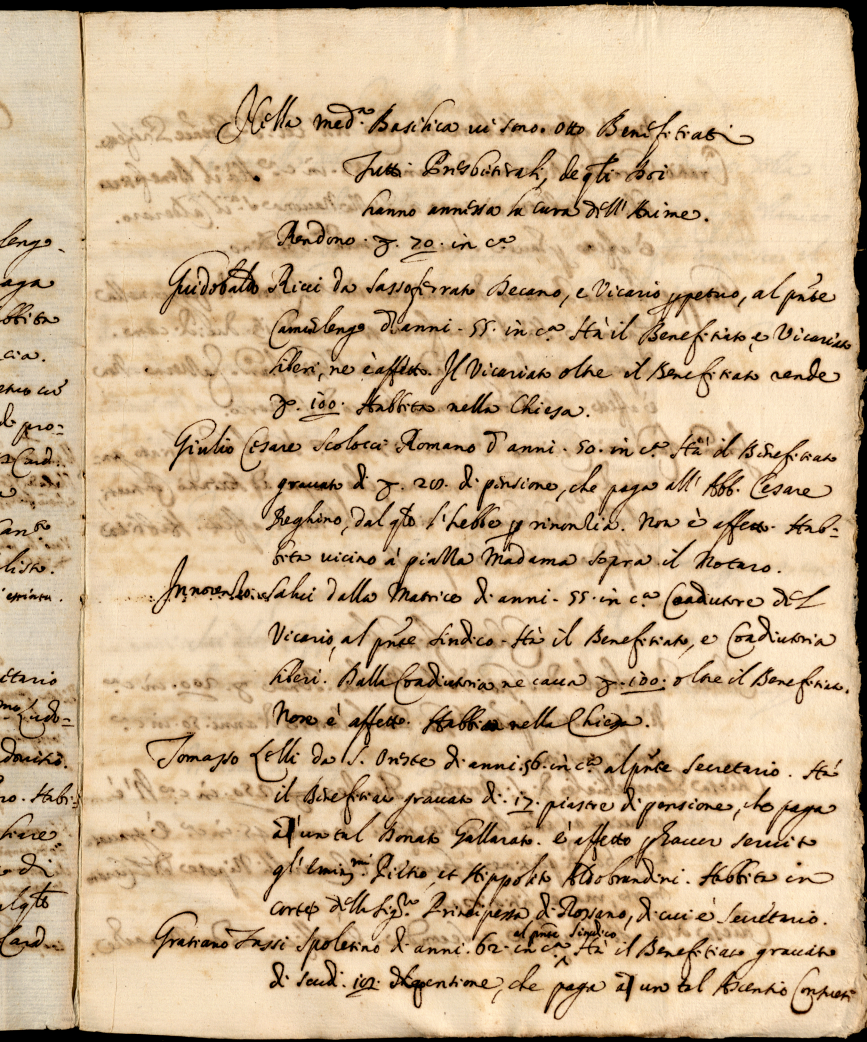 Nella med.ª Basilica vi sono otto Benefitiati
Tutti Presbiterali, de q̃li Doi
hanno annessa la cura dell'Anime.
Rendono ∇. 70. in c.ª
Guidobaldo Ricci da Sassoferrato Decano, e Vicario ppetuo, al pñte
Camerlengo d'anni. 55. in c.ª Hà il Benefitiato, e Vicariato
liberi, ne è affetto. Il Vicariato oltre il Benefitiato rende
∇. 100. Habbita nella Chiesa.
Giulio Cesare Scolocci Romano d'anni. 50. in c.ª Hà il Benefitiato
gravato di ∇. 20. di pensione, che paga all'Abb. Cesare
Reghino, dal q̃le l'hebbe p rinontia. Non è affetto. Hab=
bita vicino à piazza Madama sopra il Notaro.
Innocentio Salvi dalla Matrice di anni. 55. in c.ª Coadiutore del
Vicario, al pñte Sindico. Hà il Benefitiato, e Coadiutoria
liberi. Dalla Coadiutoria ne cava ∇. 100. oltre il Benefitiato.
Non è affetto. Habbita nella Chiesa.
Tomasso Lelli da S. Oreste di anni. 56. in c.ª al pñte Secretario. Hà
il Benefitiato gravato di. 17. piastre di pensione, che paga
à un tal Donato Gallarato. è affetto p haver servito
gl'Emin.mi Pietro, et Hippolito Aldobrandini. Habbita in
corte della Sig.ra Principessa di Rossano, di cui è Secretario.
al pñte Sindico
Gratiano Fussi Spoletino di anni. 62. in c.ª Hà il Benefitiato gravato
di scudi. di pentione, che paga à un tal Ascentio